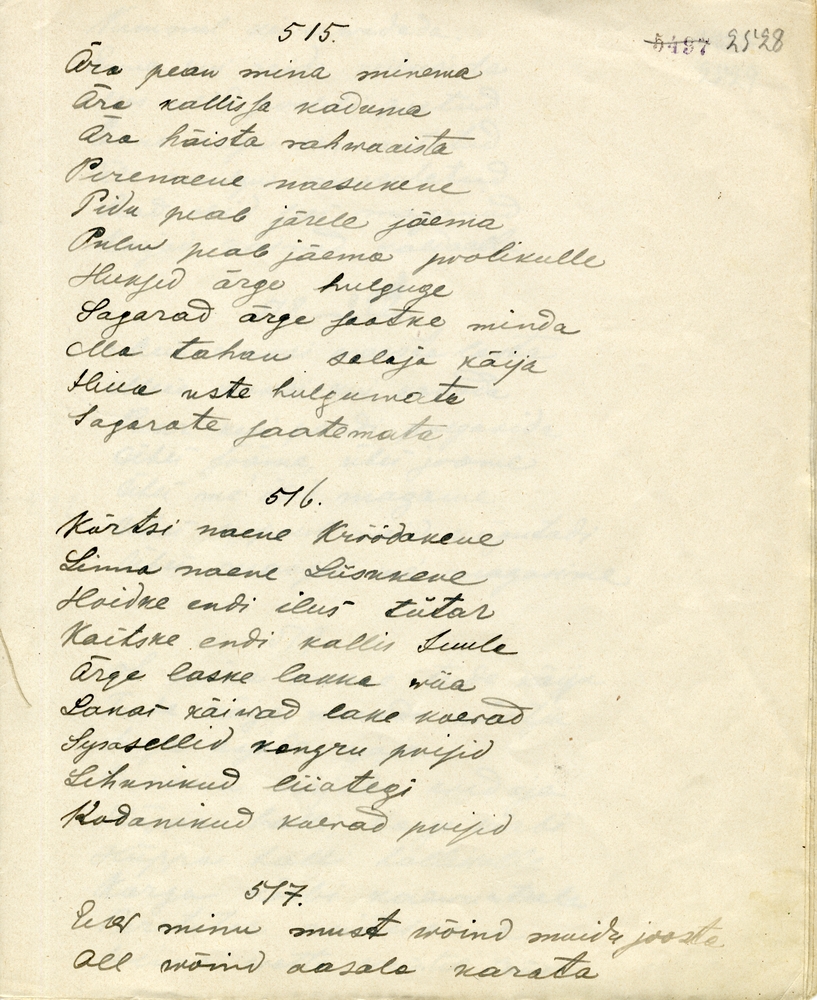 515.
5497 2528
Ära pean mina minema
Ära kallissa kaduma
Ära häista rahwaaista
Perenaene naesukene
Pidu peab järele jäema
Pulm peab jäema poolikulle
Huksed ärge hulguge
Sagarad ärge saatke minda
Ma tahan salaja käija
Ilma uste hulgumata
Sagarate saatemata
516.
Kõrtsi naene Kröödakene
Linna naene Liisukene
Hoidke endi ilus tütar
Kaitske endi kallis Juula
Ärge laske lauka wiia
Lanas käiwad lake koerad
sellid kengru poisid
Lihunikud liiategi
Kodanikud koerad poisid
517.
minu must wõind maida joosta
All wõind aasala karata